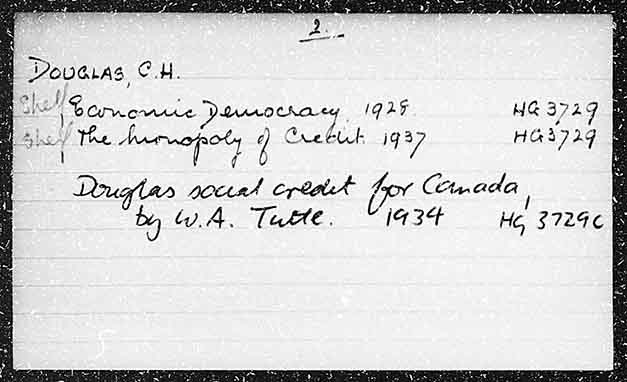 2.
DOUGLAS, C.H.
Shelf Economic Democracy. 1928. HG 3729
Shelf The Monopoly of Credit. 1937 HG 3729
Douglas social credit for Canada,
by W.A. Tutte. 1934 HG 3729C